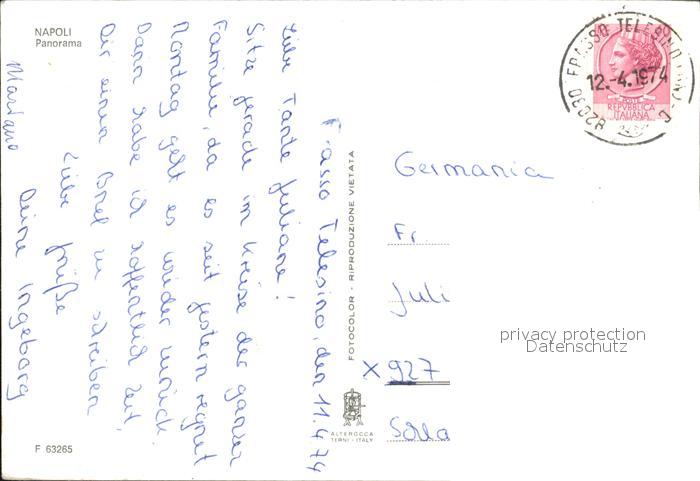 NAPOLI
Panorama
Frasso Telesino, den 11.4.74
Liebe Tante Juliane!
Sitze gerade im Kreise der ganzen
Familie, da es seit gestern regnet
Montag geht es wieder zurück.
Dann habe ich hoffentlich Zeit,
Dir einen Brief zu schreiben
Liebe Grüße
Deine Ingeborg
Mariano
F 63265
FOTOCOLOR - RIPRODUZIONE VIETATA
ALTEROCCA
TERNI - ITALY
FRASSO TELESINO
12.-4.1974
82030
POSTE
REPVBBLICA
ITALIANA
Germania
Fr.
Juli
X 927
privacy protection
Datenschutz